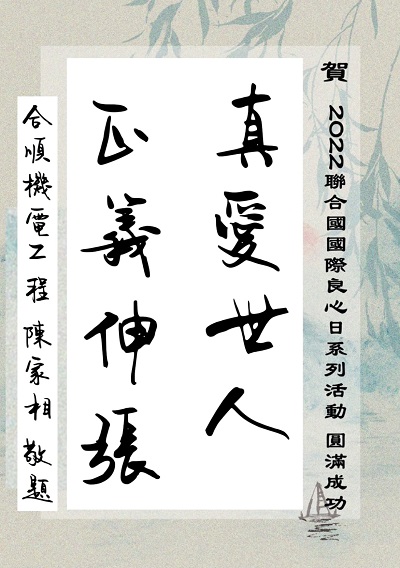 賀 2022聯合國國際良心日系列活動 圓滿成功
真愛世人
正義伸張
合順機電工程 陳家相 敬題